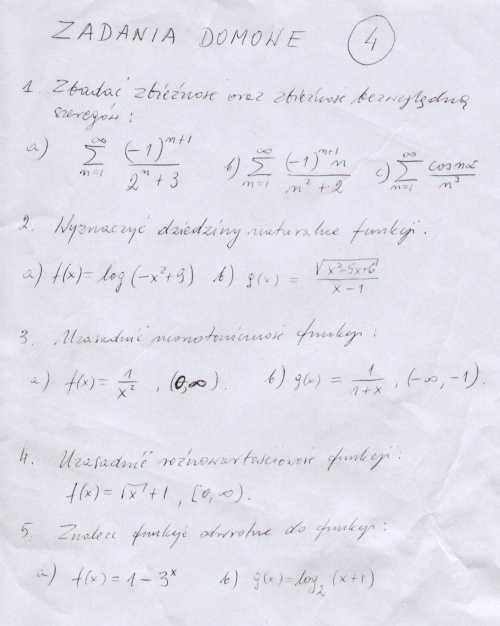 ZADANIA DOMOWE 4
1. Zbadać zbieżność oraz zbieżność bezwzględną
szeregów:
a) \sum_{n=1}^{∞} \frac{(-1)^{n+1}}{2^n + 3} b) \sum_{n=1}^{∞} \frac{(-1)^{n+1} n}{n^2 + 2} c) \sum_{n=1}^{∞} \frac{\cos nα}{n^3}
2. Wyznaczyć dziedziny naturalne funkcji:
a) f(x) = log(-x²+9) b) g(x) = \frac{\sqrt{x²-5x+6}}{x-1}
3. Uzasadnić monotoniczność funkcji:
a) f(x) = \frac{1}{x²}, (0,∞). b) g(x) = \frac{1}{1+x}, (-∞,-1).
4. Uzasadnić różnowartościowość funkcji:
f(x) = √x + 1, [0,∞).
5. Znaleźć funkcje odwrotne do funkcji:
a) f(x) = 1 - 3ˣ b) g(x) = log₂(x+1)